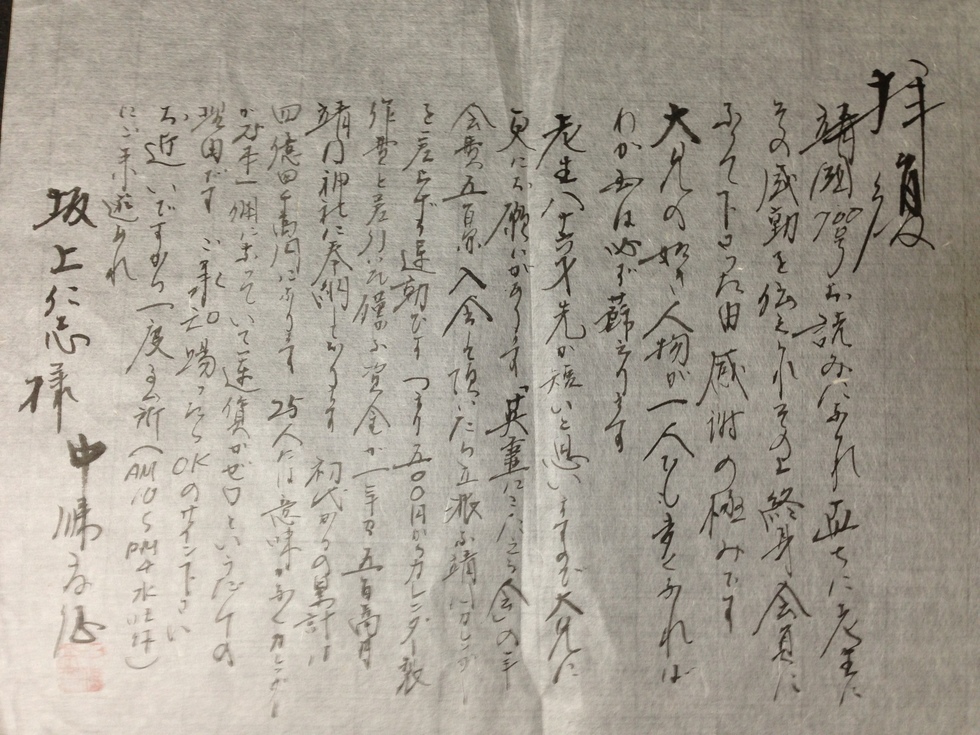 拝復
靖國700号お読みになれ直ちに老生に
その感動を伝えられその上終身会員に
なって下さった由 感謝の極みです
大兄の如き人物が一人でも多くなれば
わが国は必ず蘇えります
老生八十六才先が短いと思いますので大兄に
更にお願いがあります「英霊にこたえる会」の年
会費五百円 入会を頂いたら立派な靖国カレンダー
を差上げる運動です つまり五〇〇円からカレンダー製
作費を差引いた僅かな資金が一年で五百万円
靖国神社に奉納しております 初代からの累計は
四億四千万円になります 25人には意味がなくカレンダー
が 一個になっていて運賃がゼロというだけの
理由です ご承知賜ったらOKのサイン下さい
お近いですから一度事務所(AM10〜PM4水土休)
にご来遊あれ
坂上仁志様
中